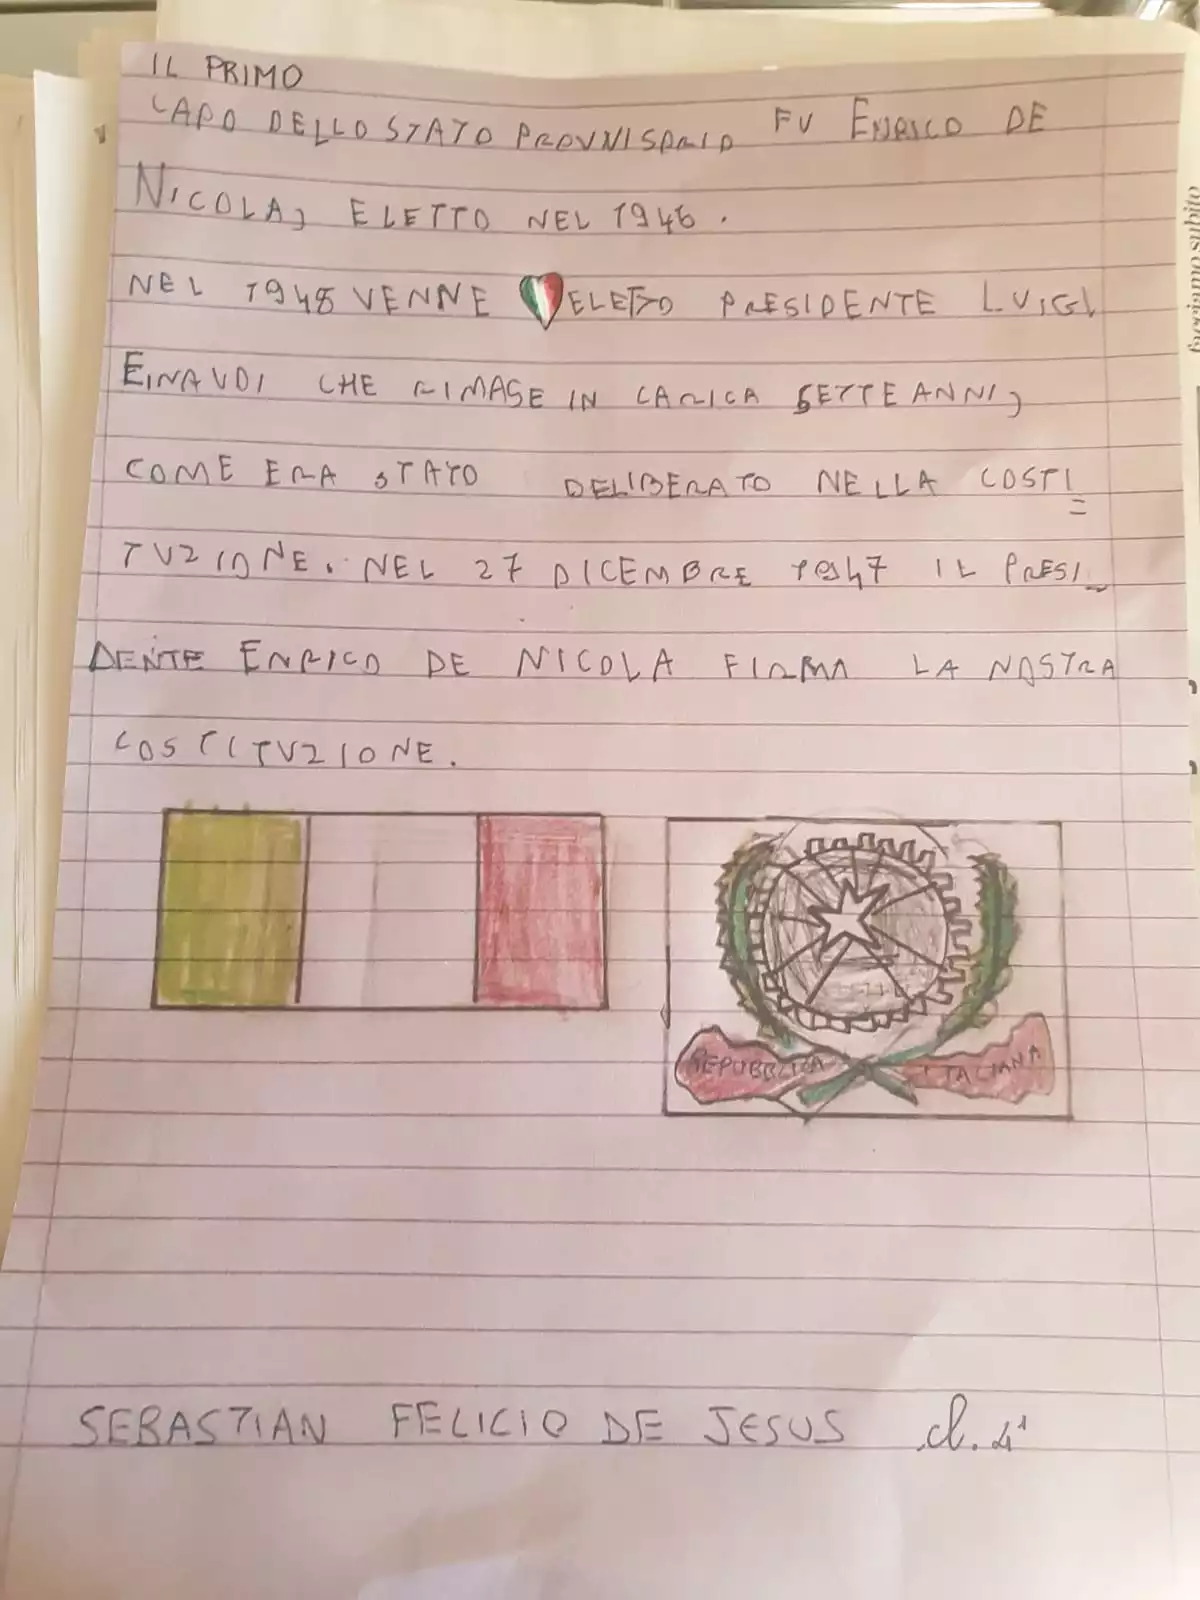 IL PRIMO
CAPO DELLO STATO PROVVISORIO FU ENRICO DE
NICOLA, ELETTO NEL 1946.
NEL 1948 VENNE ELETTO PRESIDENTE LUIGI
EINAUDI CHE RIMASE IN CARICA SETTE ANNI,
COME ERA STATO DELIBERATO NELLA COSTI=
TUZIONE. NEL 27 DICEMBRE 1947 IL PRESI_
DENTE ENRICO DE NICOLA FIRMA LA NOSTRA
COSTITUZIONE.
REPUBBLICA ITALIANA
SEBASTIAN FELICIO DE JESUS cl. 4ª
facciamo subito